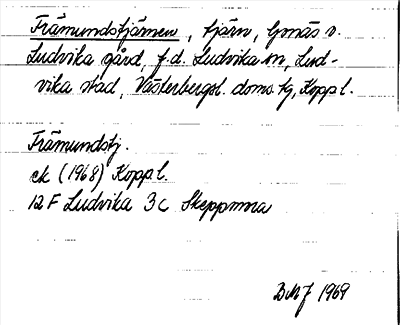 Främundstjärnen, tjärn, Gonäs v.
Ludvika gård, f.d. Ludvika sn, Lud-
vika stad, Västerbergsl. doms. tg, Koppl.
Främundstj.
ek (1968) Koppl.
12 F Ludvika 3c Skeppmora
BMJ 1969